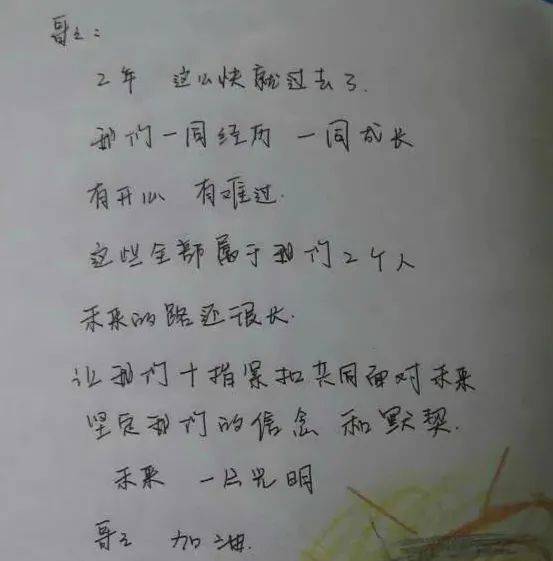 哥之：
2年 这么快就过去了.
我们一同经历 一同成长
有开心 有难过.
这些全部属于我们2个人
未来的路还很长.
让我们十指紧扣共同面对未来
坚定我们的信念 和默契.
未来 一片光明
哥之 加油.